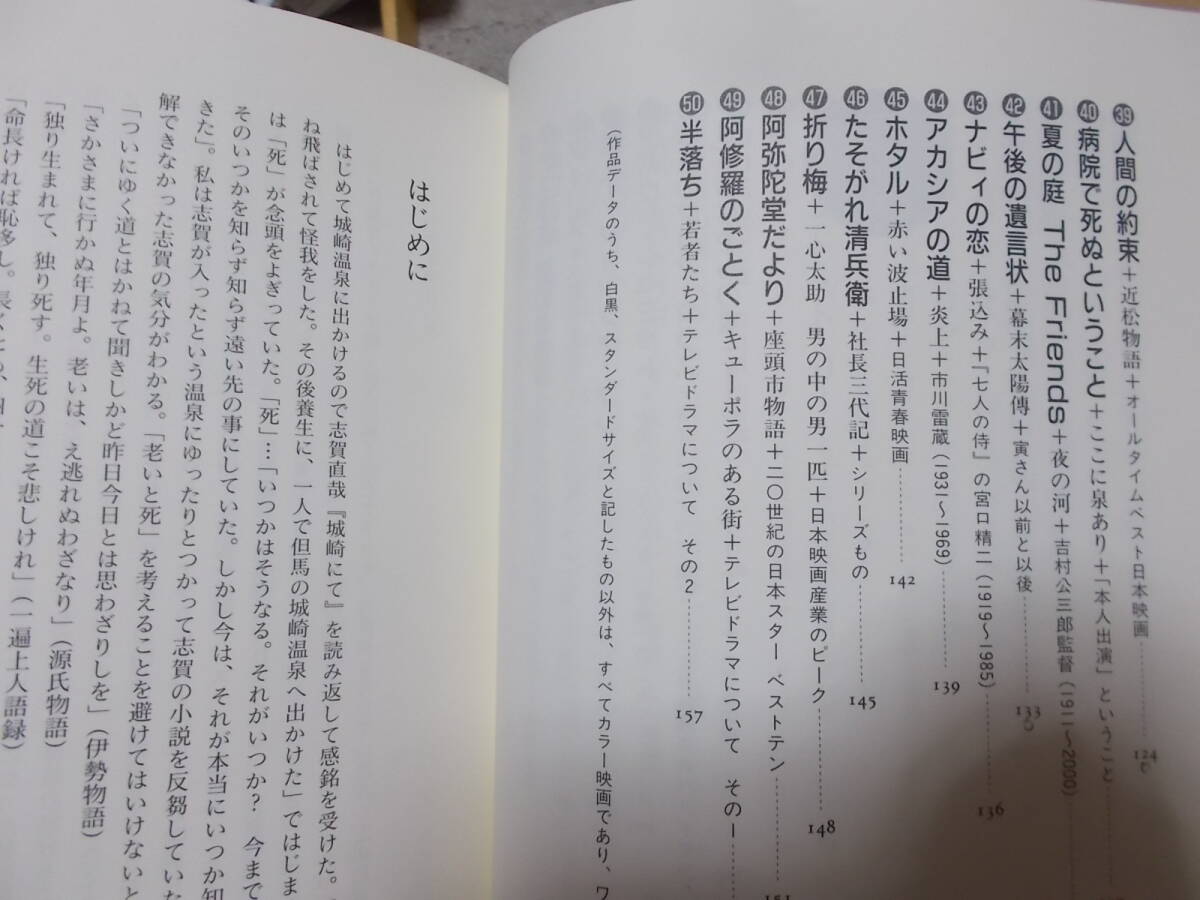 ㊴人間の約束＋近松物語＋オールタイムベスト日本映画 124
㊵病院で死ぬということ＋ここに泉あり＋「本人出演」ということ
㊶夏の庭　The Friends＋夜の河＋吉村公三郎監督（1911〜2000）
㊷午後の遺言状＋幕末太陽傳＋寅さん以前と以後 133
㊸ナビィの恋＋張込み＋『七人の侍』の宮口精二（1919〜1985） 136
㊹アカシアの道＋炎上＋市川雷蔵（1931〜1969） 139
㊺ホタル＋赤い波止場＋日活青春映画 142
㊻たそがれ清兵衛＋社長三代記＋シリーズもの 145
㊼折り梅＋一心太助　男の中の男一匹＋日本映画産業のピーク 148
㊽阿弥陀堂だより＋座頭市物語＋二〇世紀の日本スター　ベストテン 151
㊾阿修羅のごとく＋キューポラのある街＋テレビドラマについて　その1
㊿半落ち＋若者たち＋テレビドラマについて　その2 157
（作品データのうち、白黒、スタンダードサイズと記したもの以外は、すべてカラー映画であり、ワ
はじめに
はじめて城崎温泉に出かけるので志賀直哉『城崎にて』を読み返して感銘を受けた。
ね飛ばされて怪我をした。その後養生に、一人で但馬の城崎温泉へ出かけた」ではじま
は「死」が念頭をよぎっていた。「死」…「いつかはそうなる。それがいつか？　今まで
そのいつかを知らず知らず遠い先の事にしていた。しかし今は、それが本当にいつか知
きた」。私は志賀が入ったという温泉にゆったりとつかって志賀の小説を反芻していた
解できなかった志賀の気分がわかる。「老いと死」を考えることを避けてはいけないと
「ついにゆく道とはかねて聞きしかど昨日今日とは思わざりしを」（伊勢物語）
「さかさまに行かぬ年月よ。老いは、え逃れぬわざなり」（源氏物語）
「独り生まれて、独り死す。生死の道こそ悲しけれ」（一遍上人語録）
「命長ければ恥多し。長くとも、四十